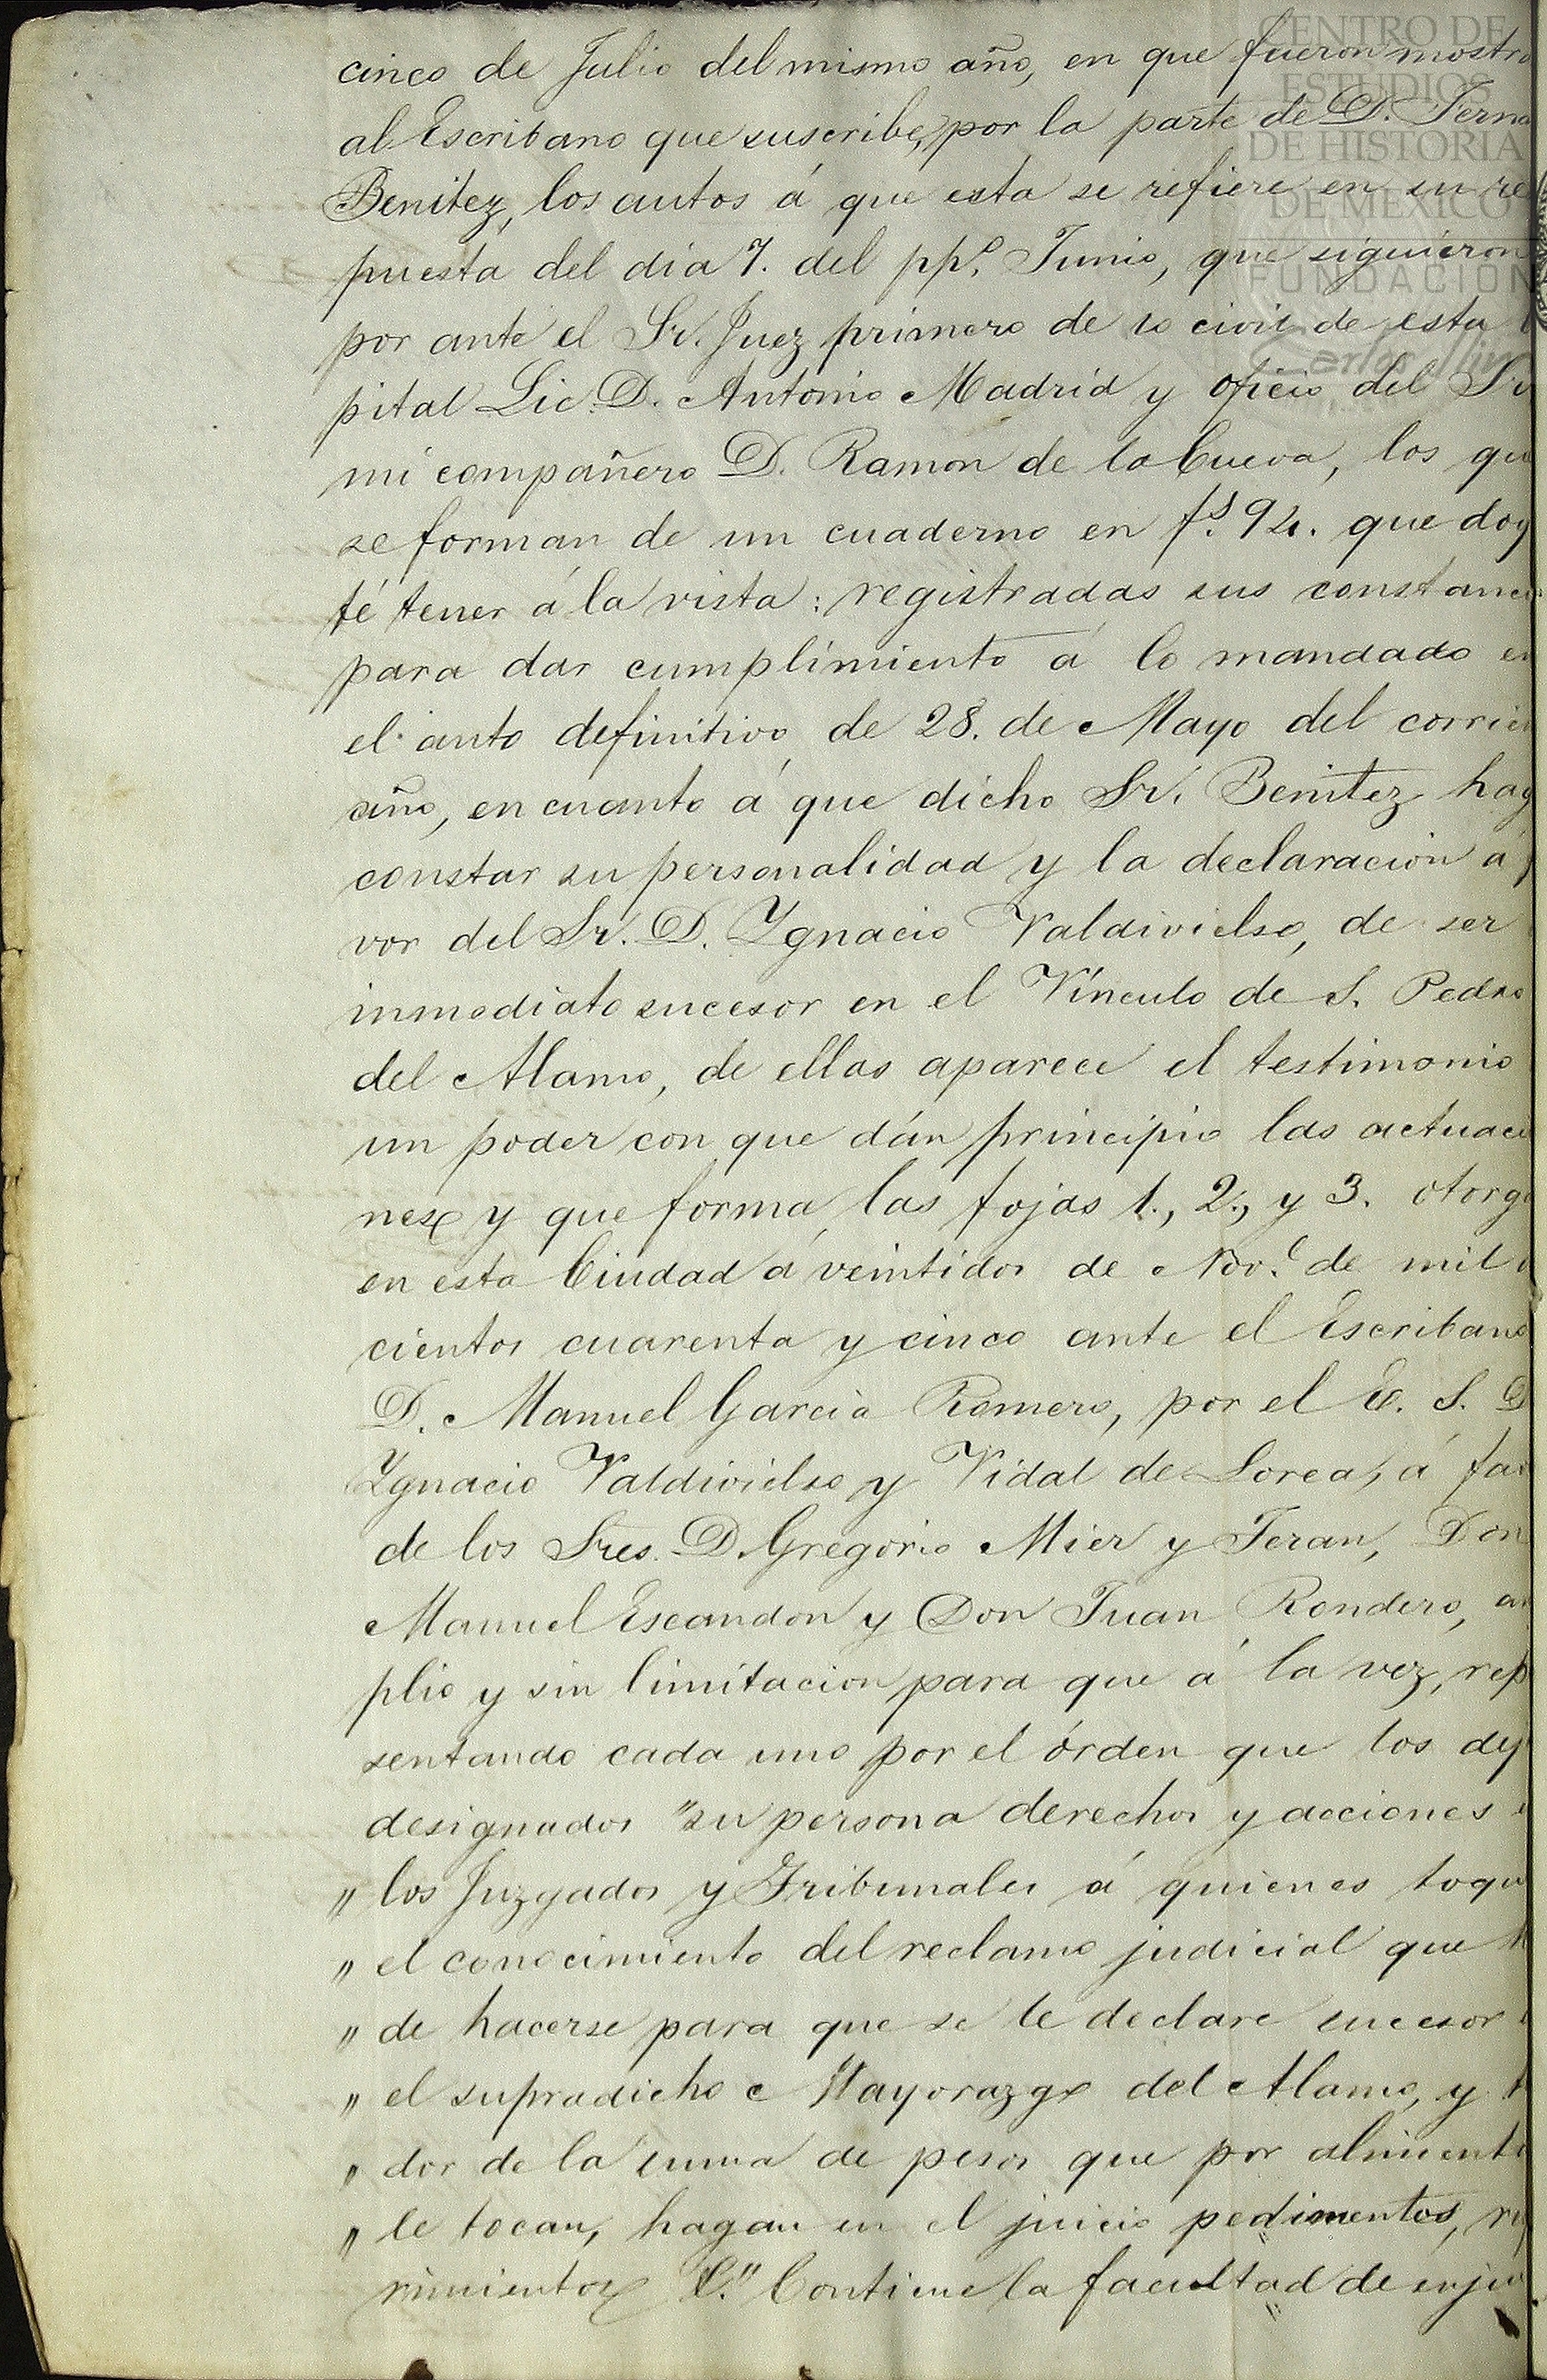 CENTRO DE
ESTUDIOS
DE HISTORIA
DE MEXICO
FUNDACIÓN
Carlos Slim
cinco de Julio del mismo año, en que fueron mostra
al Escribano que suscribe, por la parte de D. Ferna
Benitez, los autos á que esta se refiere en su res
puesta del dia 7. del ppº. Junio, que siguieron
por ante el Sr. Juez primero de lo civil de esta
pital Lic. D. Antonio Madrid y oficio del Sr
mi compañero D. Ramon de la Cueva, los qu
se forman de un cuaderno en fs. 92. que doy
fé tener á la vista: registradas sus constanci
para dar cumplimiento á lo mandado en
el auto definitivo de 28. de Mayo del corrien
año, en cuanto á que dicho Sr. Benitez hag
constar su personalidad y la declaracion á f
vor del Sr. D. Ygnacio Valdivielso, de ser
inmediato sucesor en el Vínculo de S. Pedro
del Alamo, de ellas aparece el testimonio
un poder con que dán principio las actuaci
nes y que forma las fojas 1., 2., y 3. otorga
en esta Ciudad á veintidos de Nove. de mil o
cientos cuarenta y cinco ante el Escribano
D. Manuel Garcia Romero, por el E. S. D
Ygnacio Valdivielso y Vidal de Lorca, á fav
de los Sres. D. Gregorio Mier y Teran, Don
Manuel Escandon y Don Juan Rondero, am
plio y sin limitacion para que á la vez, rep
sentando cada uno por el órden que los dej
designados "su persona derechos y acciones e
" los Juzgados y Tribunales á quienes toqu
" el conocimiento del reclamo judicial que h
" de hacerse para que se le declare sucesor e
" el supradicho Mayorazgo del Alamo, y
" dor de la suma de pesos que por alimento
" le tocan, hagan en el juicio pedimentos, re
rimientos &." Contiene la facultad de enjui